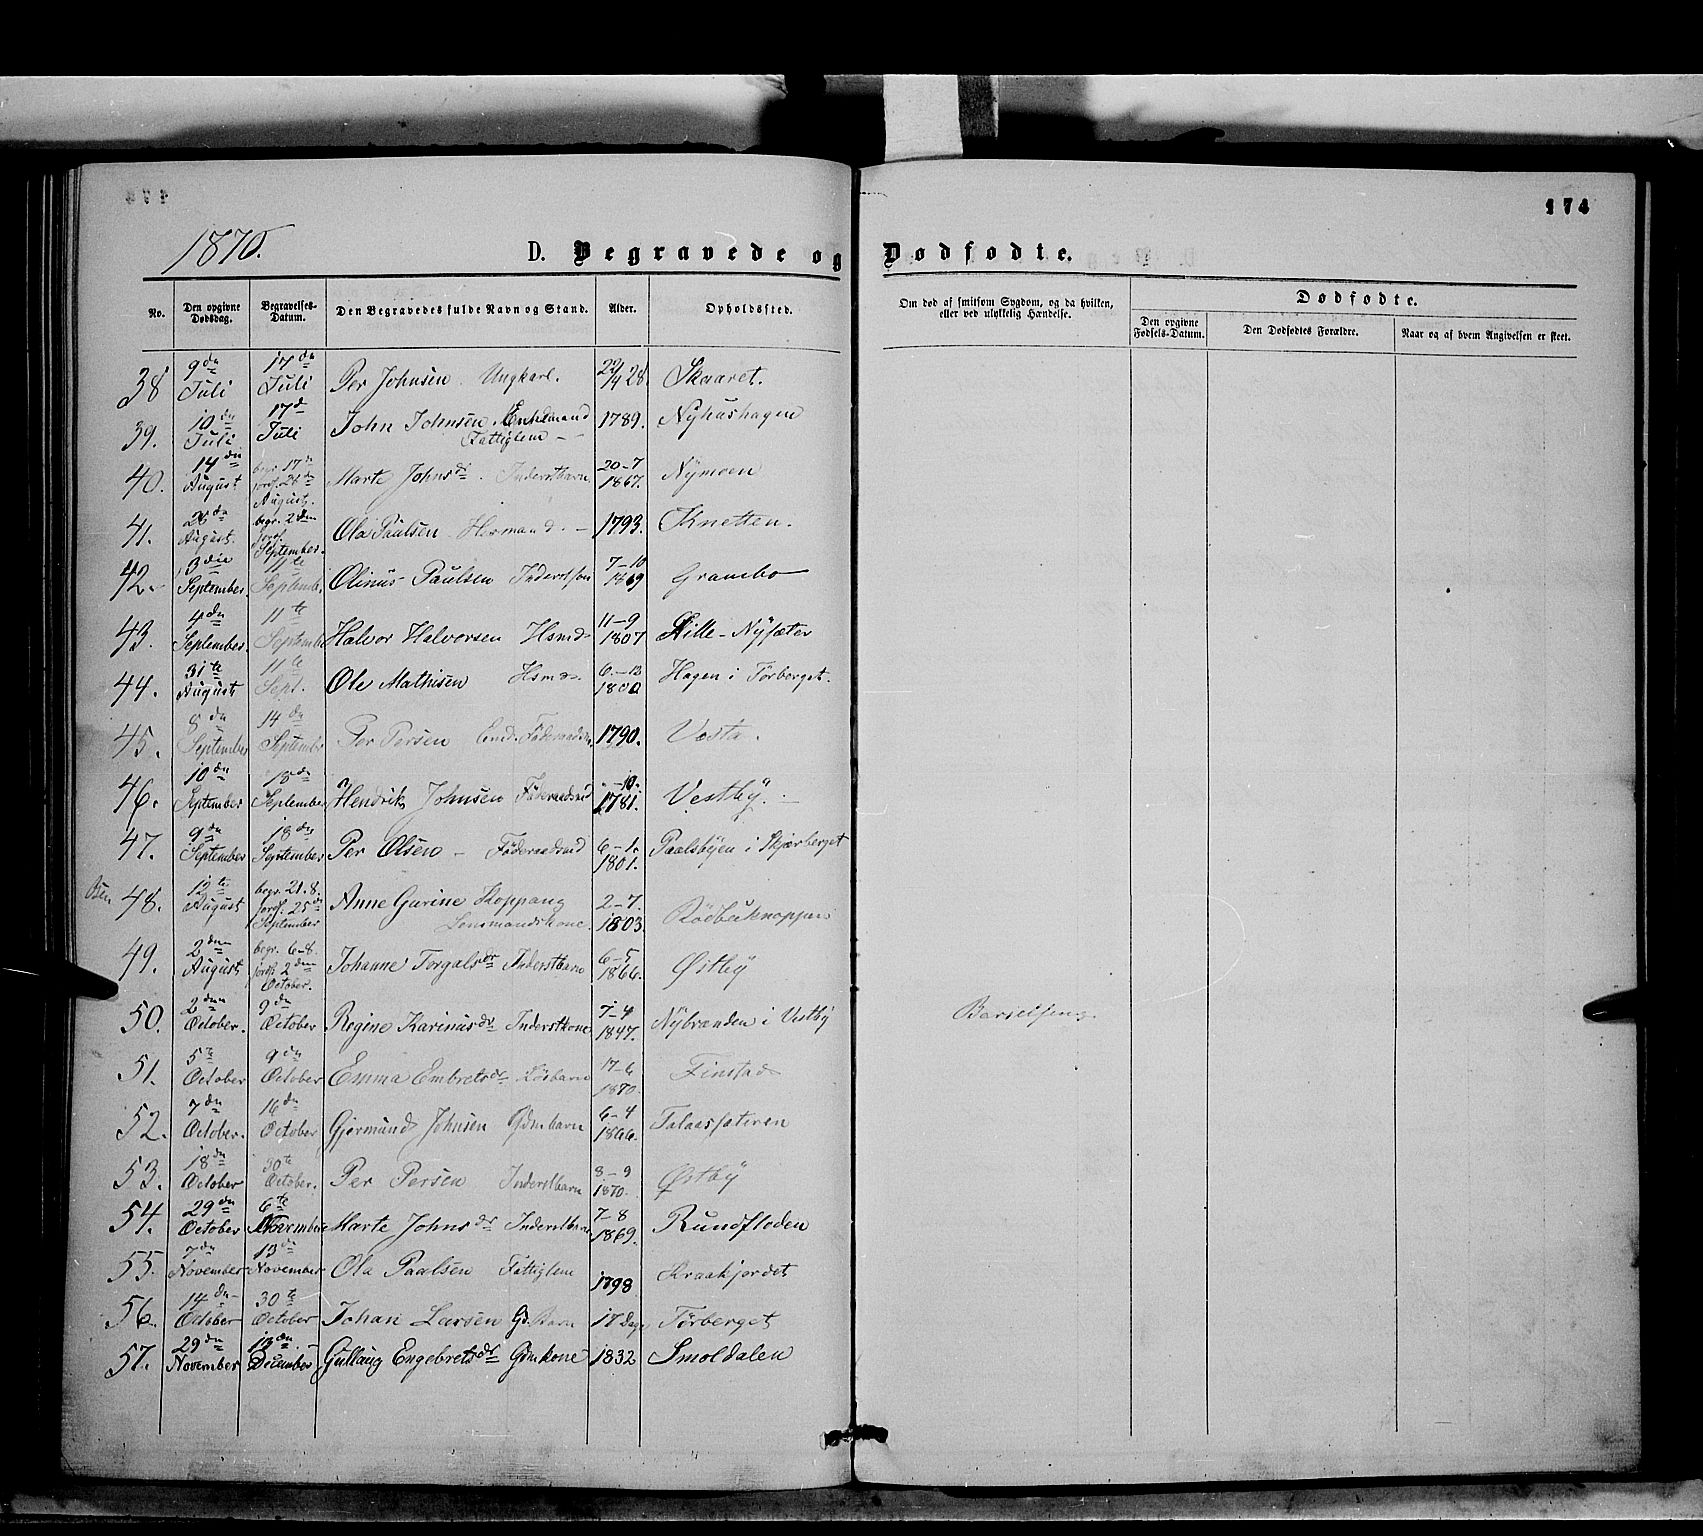 174
1870.
D. Begravede og Dødfødte.
No. Den opgivne Dødsdag. Begravelses-Datum. Den Begravedes fulde Navn og Stand. Alder. Opholdssted. Om død af smitsom Sygdom, og da hvilken, eller ved ulykkelig Hændelse. Dødfødte.
Den opgivne Fødsels-Datum. Den Dødfødtes Forældre. Naar og af hvem Angivelsen er skeet.
38 9de Juli 17de Juli Per Johnsen. Ungkarl. 22/4 28. Skaaret.
39. 10de Juli 17de Juli John Johnsen. Enkemand Fattiglem 1789. Nyhushagen
40. 14de August begr. 17de forr. 28de August. Marte Johnsdr. Inderstbarn. 20-7 1867. Nymoen
41. 26de August. begr. 2den September. Ola Paulsen Husmand. 1793. Knetten.
42. 3die September. 11te September Olinus Paulsen Inderstsøn 7-10 1869 Grambo
43. 4de September. 11te September Halvor Halvorsen Hsmd 11-9 1807 Lille-Nysæter
44. 31te August 11te Sept. Ole Mathisen Hsmd. 6-12 1800 Hagen i Førberget.
45. 8de September 14de September Per Persen Føderaadsm. 1790. Vesta.
46. 10de September 18de September Hendrik Johnsen Føderaadsmd -10. 1781. Vestby.
47. 9de September 18de September Per Olsen Føderaadsmd 6-1. 1801. Paalsbyen i Skjærberget
48. 12te August begr. 21.8. forr. 25de September Anne Gurine Koppang Lensmandskone 2-7. 1803. Rødbæknoppen
49. 2den August begr. 6-8. forr. 2den October. Johanne Torgalsdr Inderstbarn 6-5 1866. Østby
50. 2den October. 9de October Regine Karinusdr Inderstkone 7-4 1847. Nybranden i Vestby Barselseng.
51. 5te October 9de October Emma Embretsdr Løsbarn 17-6 1870 Finstad
52. 7de October. 16de October Gjermund Johnsen Gdmbarn 6-4 1866. Falaassæteren
53. 18de October 30te October. Per Persen Inderstbarn 3-9 1870. Østby
54. 29de October 6te November Marte Johnsdr Inderstbarn 7-8 1869. Rundfloden
55. 7de November 13de November Ola Paalsen Fattiglem 1798 Kraakjordet
56. 14de October 30te October Johan Larsen Gd. Barn 17 Dage Førberget
57. 29de November 13de December Gullaug Engebretsdr Gdmkone 1832 Smoldalen